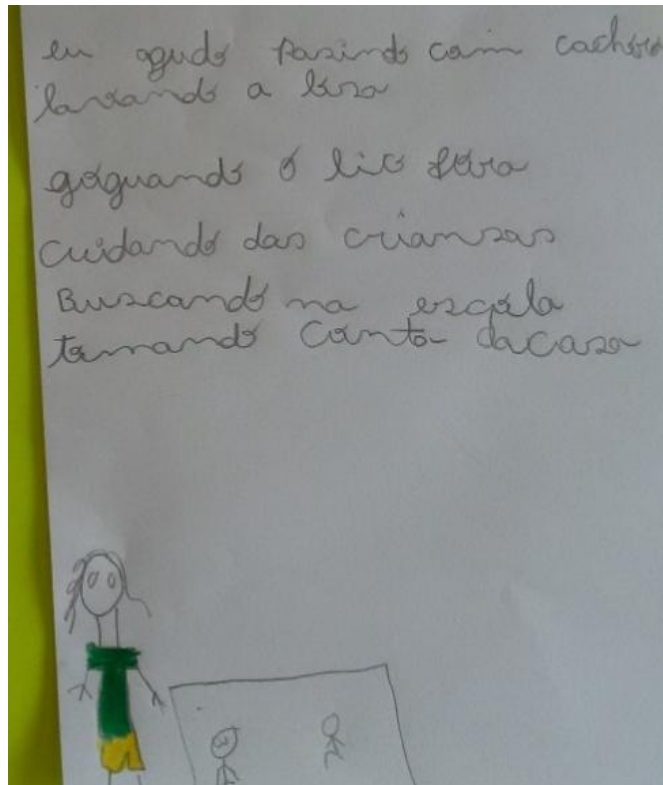 eu agudo pasindo com cachoro
lavando a losa
goguando o lico fora
cuidando das criansas
Buscando na escola
tomando conta dacasa